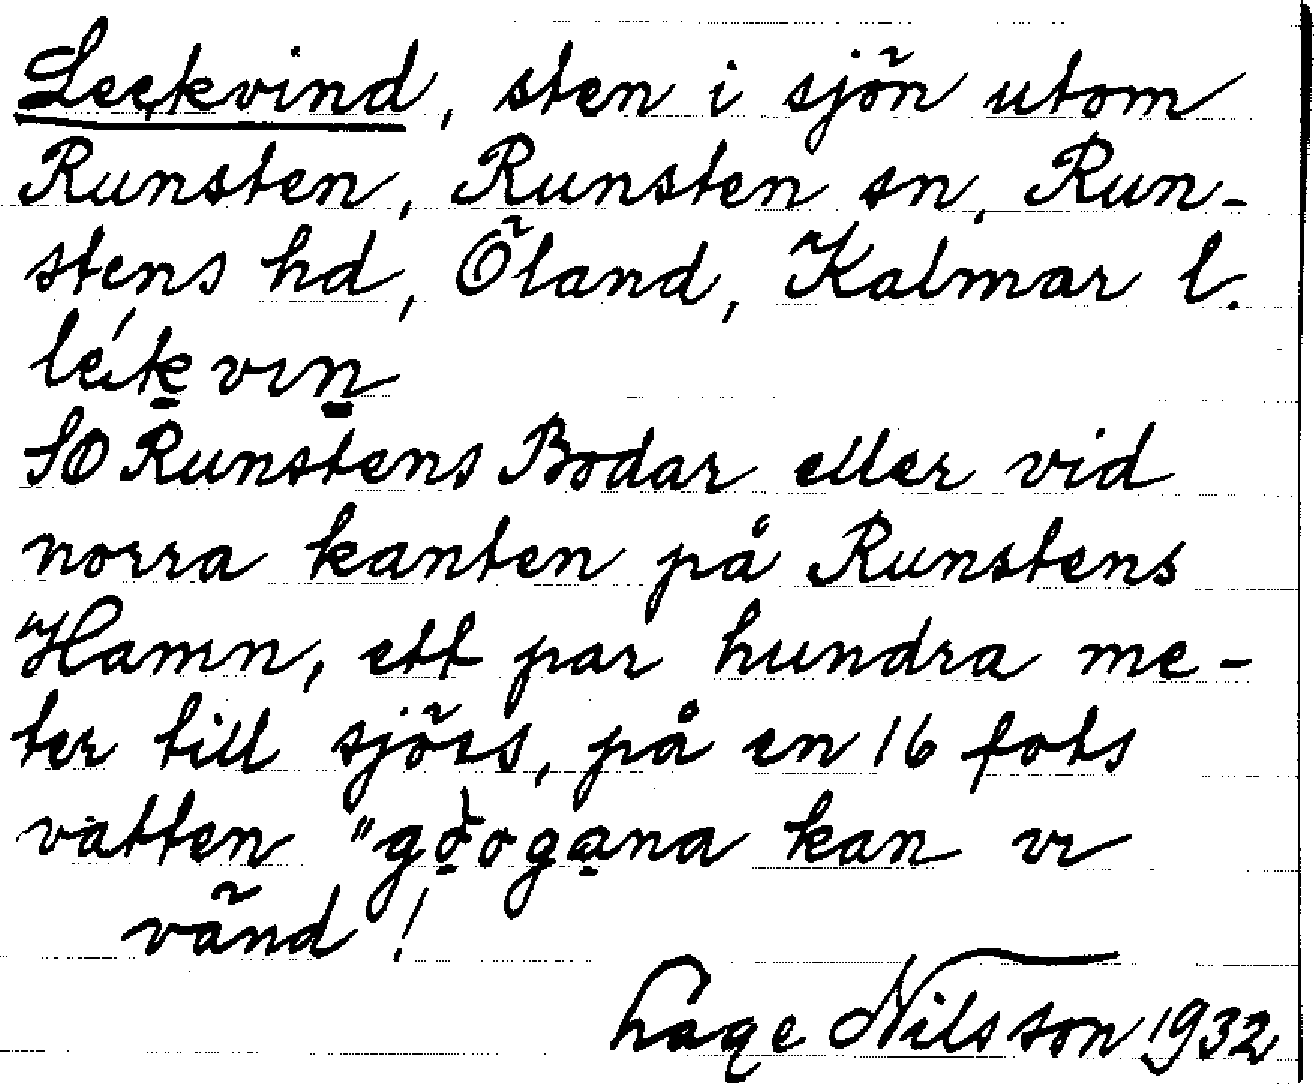 Leekvind, sten i sjön utom
Runsten, Runsten sn, Run-
stens hd, Öland, Kalmar l.
SO Runstens Bodar eller vid
norra kanten på Runstens
Hamn, ett par hundra me-
ter till sjöss, på en 16 fots
vatten "göogana kan vi
vänd!
Låge Nilsson 1932